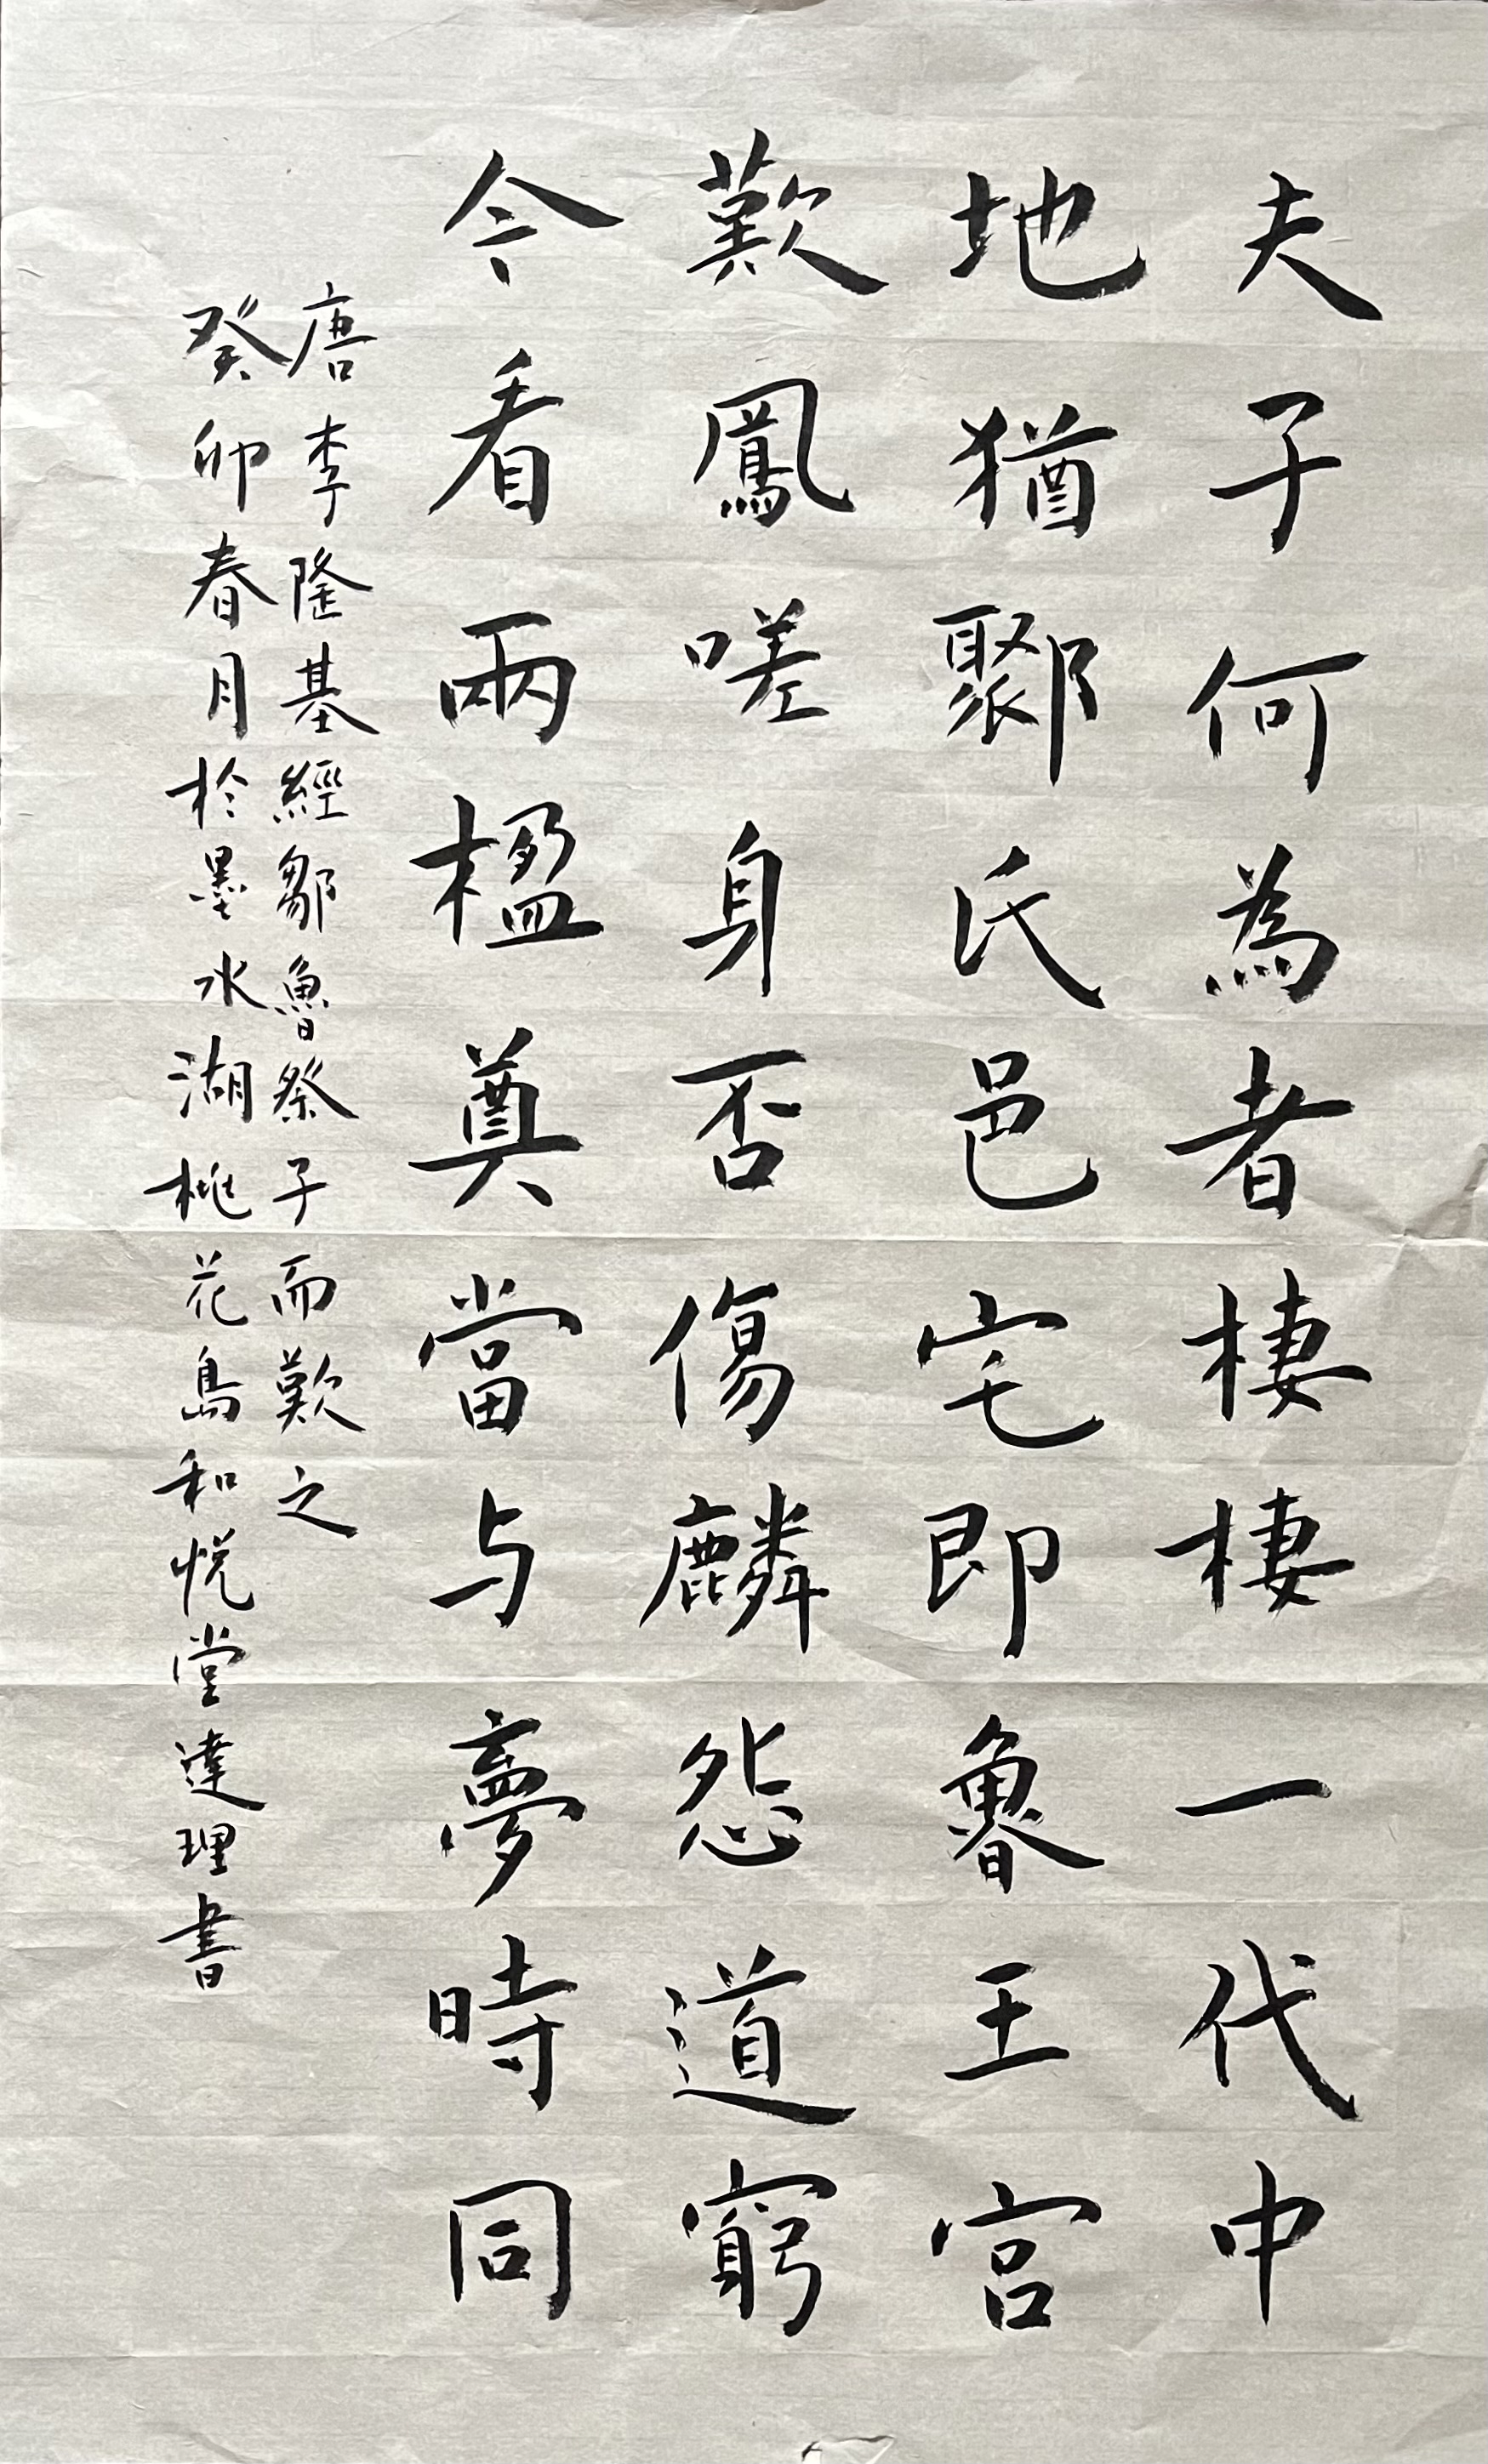 夫子何為者棲棲一代中
地猶鄹氏邑宅即魯王宮
歎鳳嗟身否傷麟怨道窮
今看兩楹奠當与夢時同
唐李隆基經鄒魯祭子而歎之
癸卯春月於墨水湖桃花島和悅堂達理書